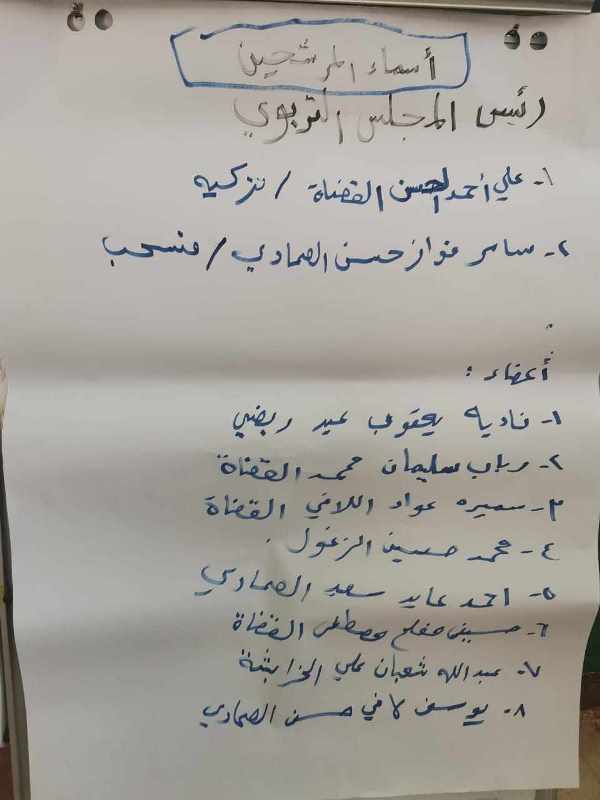 أسماء المرشحين
رئيس المجلس التربوي
١- علي أحمد الحسن القضاة / تزكيه
٢- سامر فواز حسن الصمادي / منسحب
أعضاء :
١- ناديه يعقوب عيد ربضي
٢- رباب سليمان محمد القضاة
٣- سميره عواد اللافي القضاة
٤- محمد حسين الزغول .
٥- احمد عايد سعد الصمادي
٦- حسين مفلح مصطفى القضاة
٧- عبدالله شعبان علي الخزابثة
٨- يوسف لافي حسن الصمادي